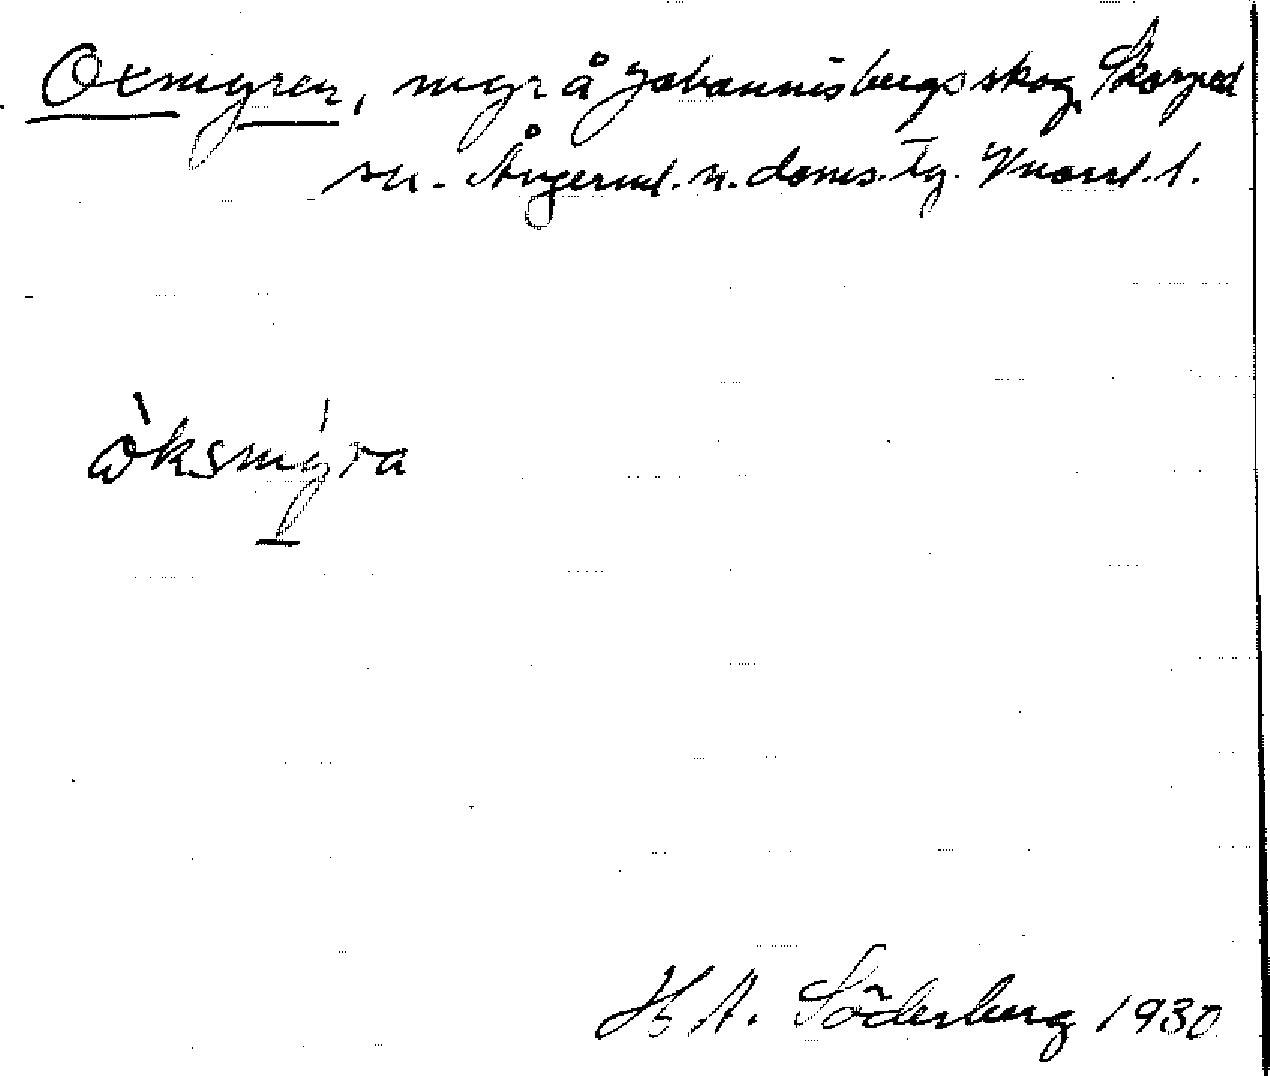 Oxmyren, myr å Johannisbergs skog, Skorped
sn. Ångerml. n. doms. tg. Vnorrl. l.
òksmýra
H A. Söderberg 1930